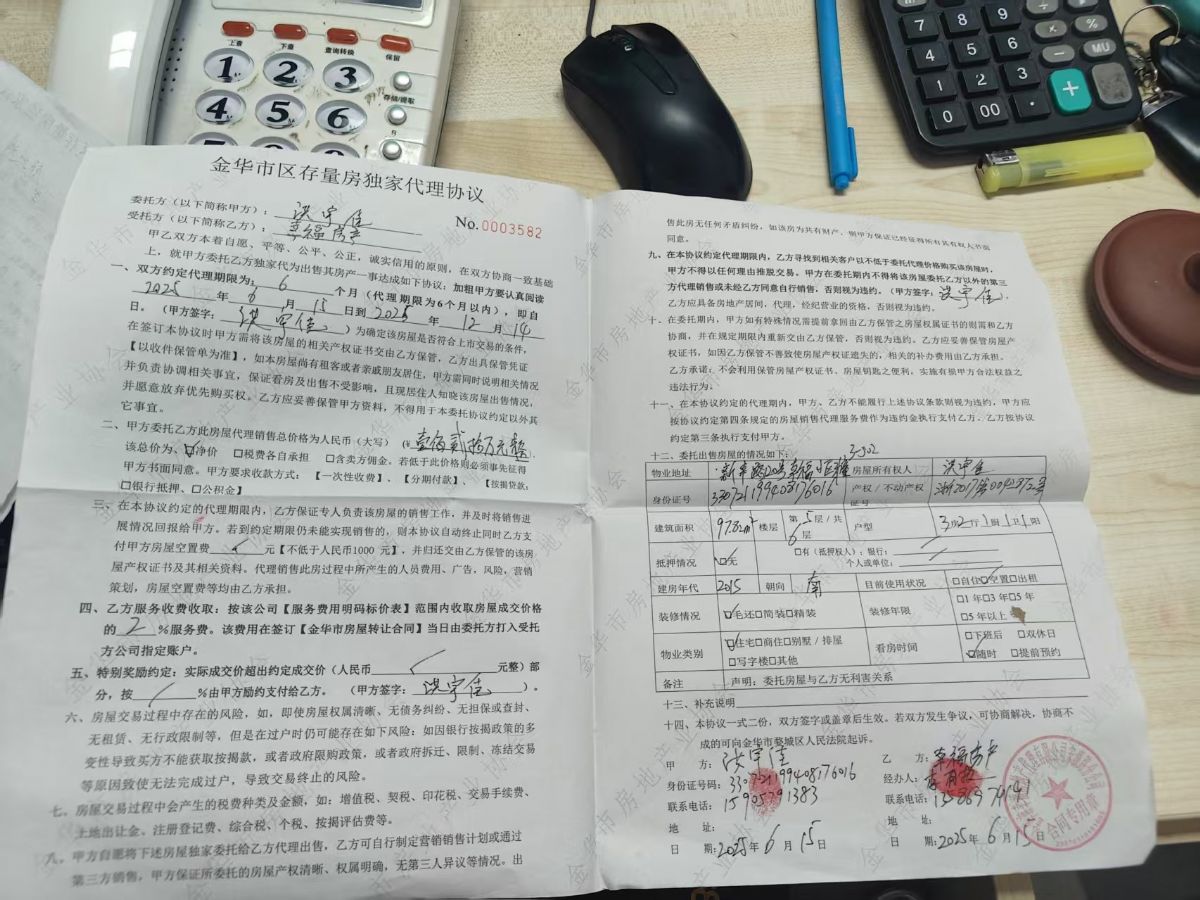 上查
下查
查询转换
保留
1
2
3
存储/提取
4
5
6
R
7
8
9
4
5
6
1
2
3
0
00
·
+
÷
×
%
−
MU
金华市区存量房独家代理协议
No.0003582
委托方（以下简称甲方）：洪宇佳
受托方（以下简称乙方）：幸福房产
甲乙双方本着自愿、平等、公平、公正，诚实信用的原则，在双方协商一致基础
上，就甲方委托乙方独家代为出售其房产一事达成如下协议：加粗甲方要认真阅读
一、双方约定代理期限为：6个月（代理期限为6个月以内），即自
2025年6月15日到2025年12月14
日。（甲方签字：洪宇佳）为确定该房屋是否符合上市交易的条件，
在签订本协议时甲方需将该房屋的相关产权证书交由乙方保管，乙方出具保管凭证
【以收件保管单为准】，如本房屋尚有租客或者亲戚朋友居住，甲方需同时说明相关情况
并负责协调相关事宜，保证看房及出售不受影响，且现居住人知晓该房屋出售情况，
并愿意放弃优先购买权。乙方应妥善保管甲方资料，不得用于本委托协议约定以外其
它事宜。
二、甲方委托乙方此房屋代理销售总价格为人民币（大写）（¥壹佰贰拾万元整），
该总价为、☑净价 □税费各自承担 □含卖方佣金。若低于此价格则必须事先征得
甲方书面同意。甲方要求收款方式：【一次性收费】、【分期付款】、【按揭贷款：
□银行抵押、□公积金】
三、在本协议约定的代理期限内，乙方保证专人负责该房屋的销售工作，并及时将销售进
展情况回报给甲方。若到约定期限仍未能实现销售的，则本协议自动终止同时乙方支
付甲方房屋空置费 元【不低于人民币1000 元】，并归还交由乙方保管的该房
屋产权证书及其相关资料。代理销售此房过程中所产生的人员费用、广告，风险，营销
策划，房屋空置费等均由乙方承担。
四、乙方服务收费收取：按该公司【服务费用明码标价表】范围内收取房屋成交价格
的2%服务费。该费用在签订【金华市房屋转让合同】当日由委托方打入受托
方公司指定账户。
五、特别奖励约定：实际成交价超出约定成交价（人民币 元整）部
分，按 %由甲方励约支付给乙方。（甲方签字：洪宇佳）。
六、房屋交易过程中存在的风险，如，即使房屋权属清晰、无债务纠纷、无担保或查封、
无租赁、无行政限制等，但是在过户时仍可能存在如下风险：如因银行按揭政策的多
变性导致买方不能获取按揭款，或者政府限购政策，或者政府拆迁、限制、冻结交易
等原因致使无法完成过户，导致交易终止的风险。
七、房屋交易过程中会产生的税费种类及金额，如：增值税、契税、印花税、交易手续费、
土地出让金、注册登记费、综合税、个税、按揭评估费等。
八、甲方自愿将下述房屋独家委托给乙方代理出售，乙方可自行制定营销销售计划或通过
第三方销售，甲方保证所委托的房屋产权清晰、权属明确，无第三人异议等情况。出
售此房无任何矛盾纠纷，如该房为共有财产，则甲方保证已经征得所有共有权人书面
同意。
九、在本协议约定代理期限内，乙方寻找到相关客户以不低于委托代理价格购买该房屋时，
甲方不得以任何理由推脱交易。甲方在委托期内不得将该房屋委托乙方以外的第三
方代理销售或未经乙方同意自行销售，否则视为违约。（甲方签字：洪宇佳
乙方应具备房地产居间，代理，经纪营业的资格，否则视为违约。
十、在委托期内，甲方如有特殊情况需提前拿回由乙方保管之房屋权属证书的则需和乙方
协商，并在规定期限内重新交由乙方保管，否则视为违约。乙方应妥善保管房屋产
权证书，如因乙方保管不善致使房屋产权证遗失的，相关的补办费用由乙方承担。
乙方承诺：不会利用保管房屋产权证书、房屋钥匙之便利，实施有损甲方合法权益之
违法行为。
十一、在本协议约定的代理期内，甲方、乙方不能履行上述协议条款则视为违约，甲方应
按协议约定第四条规定的房屋销售代理服务费作为违约金执行支付乙方。乙方按协议
约定第三条执行支付甲方。
十二、委托出售房屋的情况如下：
3-502
物业地址 房屋所有权人 洪宇佳
身份证号 330721199408176016 产权/不动产权证号
建筑面积 97.82m² 楼层 第5层/共6层 户型 3房2厅1厨1卫1阳
抵押情况 ☑无 □有（抵押权人）：银行： 个人或单位：
建房年代 2015 朝向 南 目前使用状况 □自住☑空置□出租
装修情况 ☑毛还□简装□精装 装修年限 □1年□3年□5年 □5年以上
物业类别 ☑住宅□商住□别墅／排屋 □写字楼□其他 看房时间 □下班后 □双休日 ☑随时 □提前预约
备注 声明：委托房屋与乙方无利害关系
十三、补充说明
十四、本协议一式二份，双方签字或盖章后生效。若双方发生争议，可协商解决，协商不
成的可向金华市婺城区人民法院起诉。
甲 方：洪宇佳
身份证号码：330721199408176016
联系电话：15905791383
地 址：
日 期：2025年6月15日
乙 方：幸福房产
经办人：
联系电话：
地 址：
日 期：2025年6月15日
合同专用章